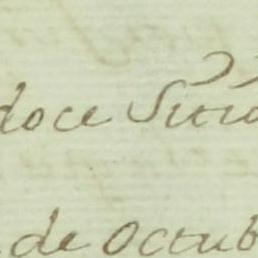 doce Sitio
de Octub